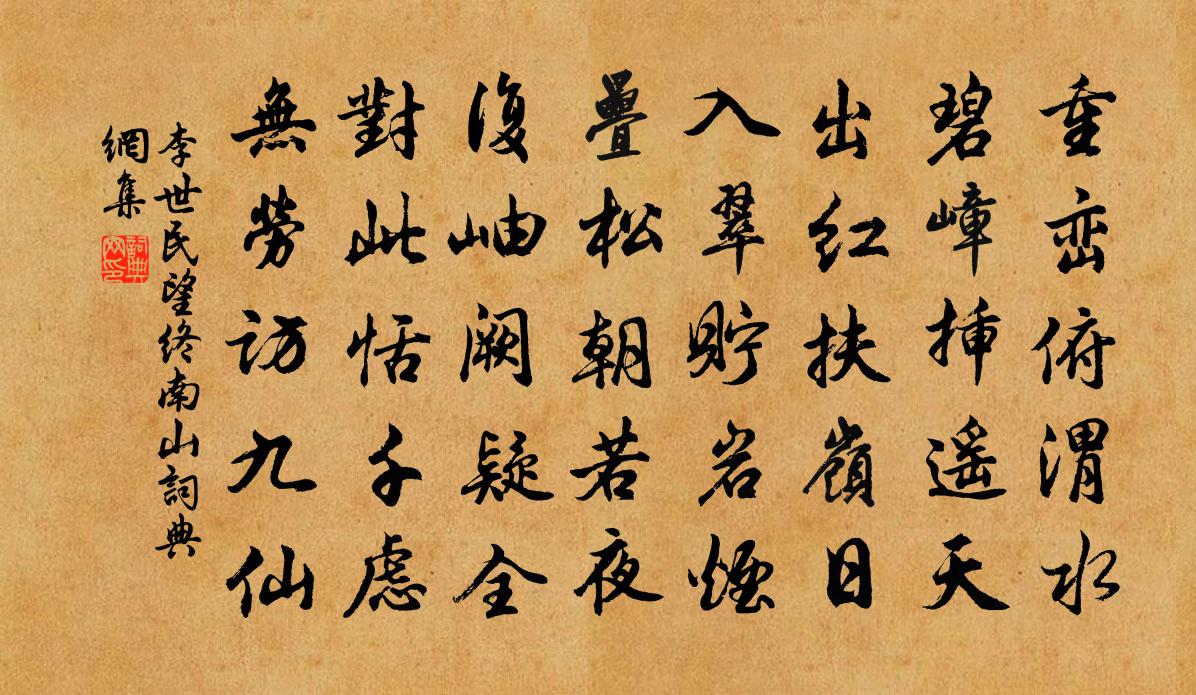 重巒俯渭水
碧嶂插遥天
出红扶嶺日
入翠貯岩煙
疊松朝若夜
復岫阙疑全
對此恬千虑
無勞访九仙
李世民望终南山詞典
網集
詞典
网印